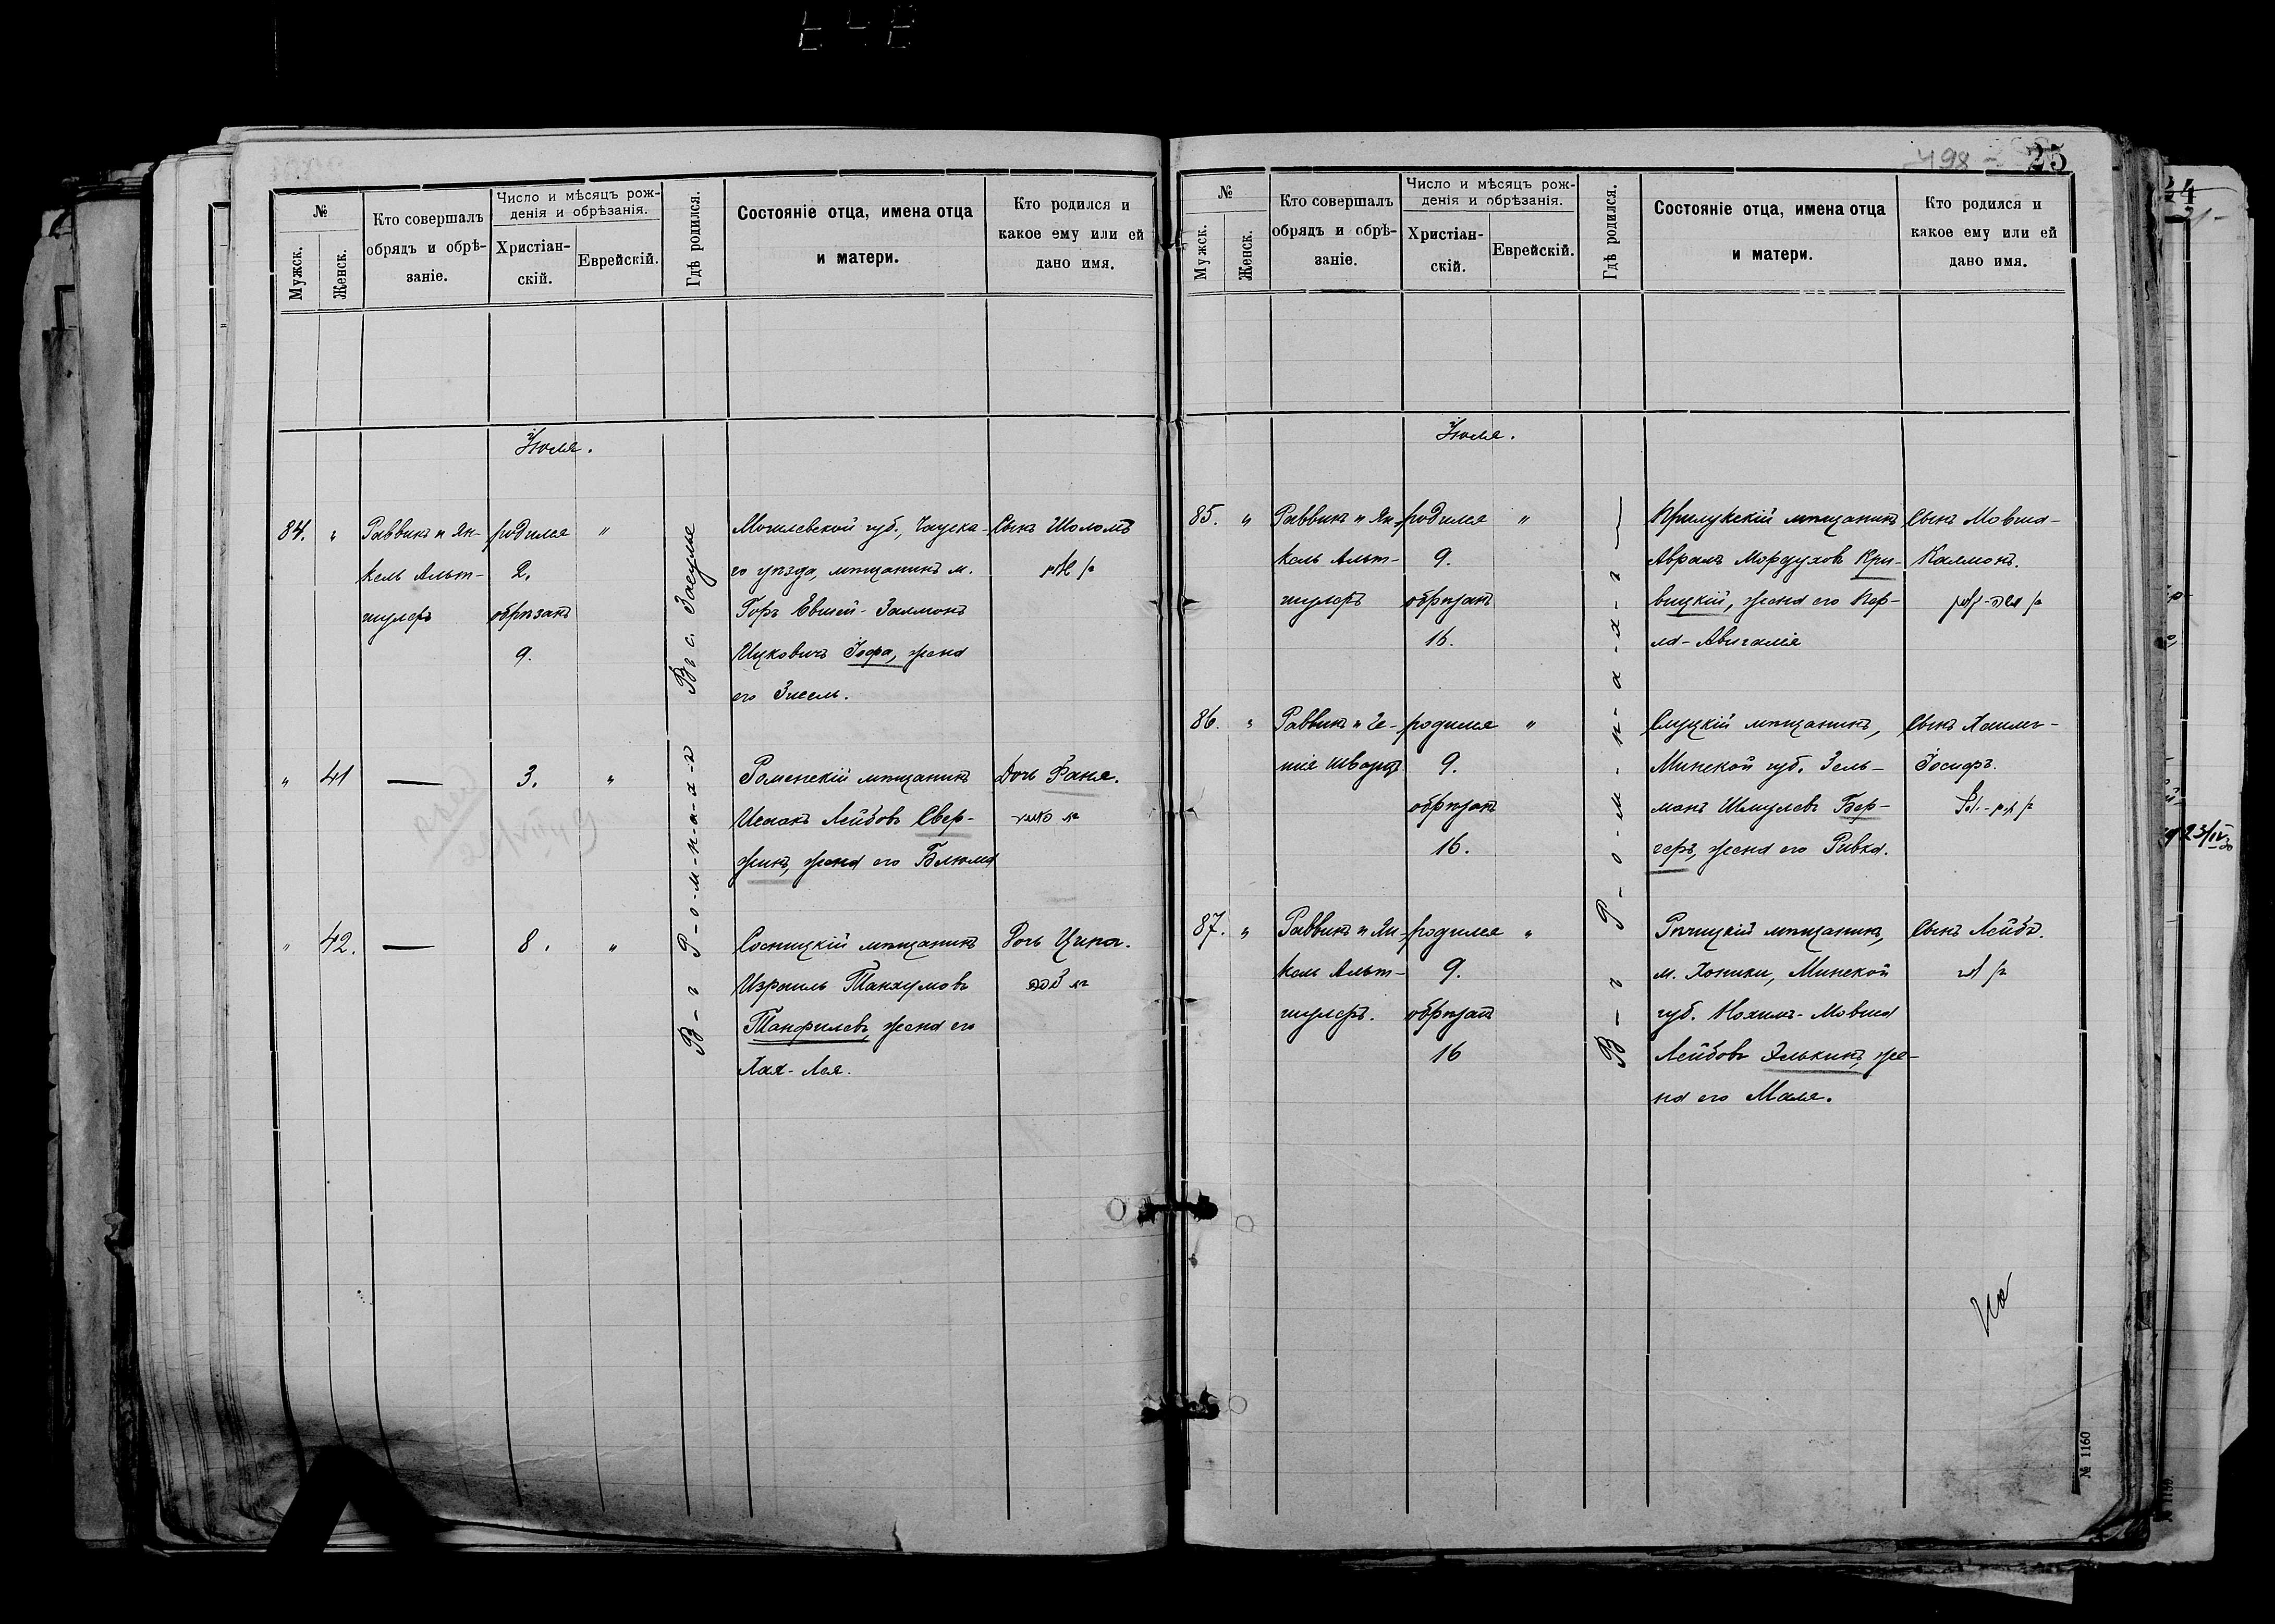 498 - 25
№
Мужск.
Женск.
Кто совершалъ
обрядъ и обрѣ-
заніе.
Число и мѣсяцъ рож-
денія и обрѣзанія.
Христіан-
скій.
Еврейскій.
Гдѣ родился.
Состояніе отца, имена отца
и матери.
Кто родился и
какое ему или ей
дано имя.
Іюля.
84. " Раввинъ и Ян-
кель Альт-
шулеръ
родился "
2.
обрѣзанъ
9.
Въ с. Засулье
Могилевской губ., Чауска-
го уѣзда, мѣщанинъ м.
Горъ Евсей-Залмонъ
Ицковичъ Іофа, жена
его Зисель.
Сынъ Шоломъ
" 41 — 3. "
Роменскій мѣщанинъ
Исаакъ Лейбовъ Свер-
жинъ, жена его Блюма
Дочь Фаня.
" 42. — 8. "
Въ Р-о-м-н-а-х-ъ
Сосницкій мѣщанинъ
Израиль Танхумовъ
Танфилевъ, жена его
Хая-Лея.
Дочь Ципа.
בת צפה
№
Мужск.
Женск.
Кто совершалъ
обрядъ и обрѣ-
заніе.
Число и мѣсяцъ рож-
денія и обрѣзанія.
Христіан-
скій.
Еврейскій.
Гдѣ родился.
Состояніе отца, имена отца
и матери.
Кто родился и
какое ему или ей
дано имя.
Іюля.
85. " Раввинъ и Ян-
кель Альт-
шулеръ
родился "
9.
обрѣзанъ
16.
Прилукскій мѣщанинъ
Аврамъ Мордуховъ Кри-
вицкій, жена его Пер-
ла-Авигалія
Сынъ Мовша-
Калмонъ.
86. " Раввинъ и
родился "
9.
обрѣзанъ
16.
Слуцкій мѣщанинъ,
Минской губ. Зель-
манъ Шмулевъ Бер-
геръ, жена его Ривка.
Сынъ Хаимъ-
Іосифъ.
87. " Раввинъ и Ян-
кель Альт-
шулеръ.
родился "
9.
обрѣзанъ
16
В-ъ Р-о-м-н-а-х-ъ
Рѣчицкій мѣщанинъ,
м. Хойники, Минской
губ. Нохимъ-Мовша
Лейбовъ Элькинъ, же-
на его Маля.
Сынъ Лейба.
№ 1160